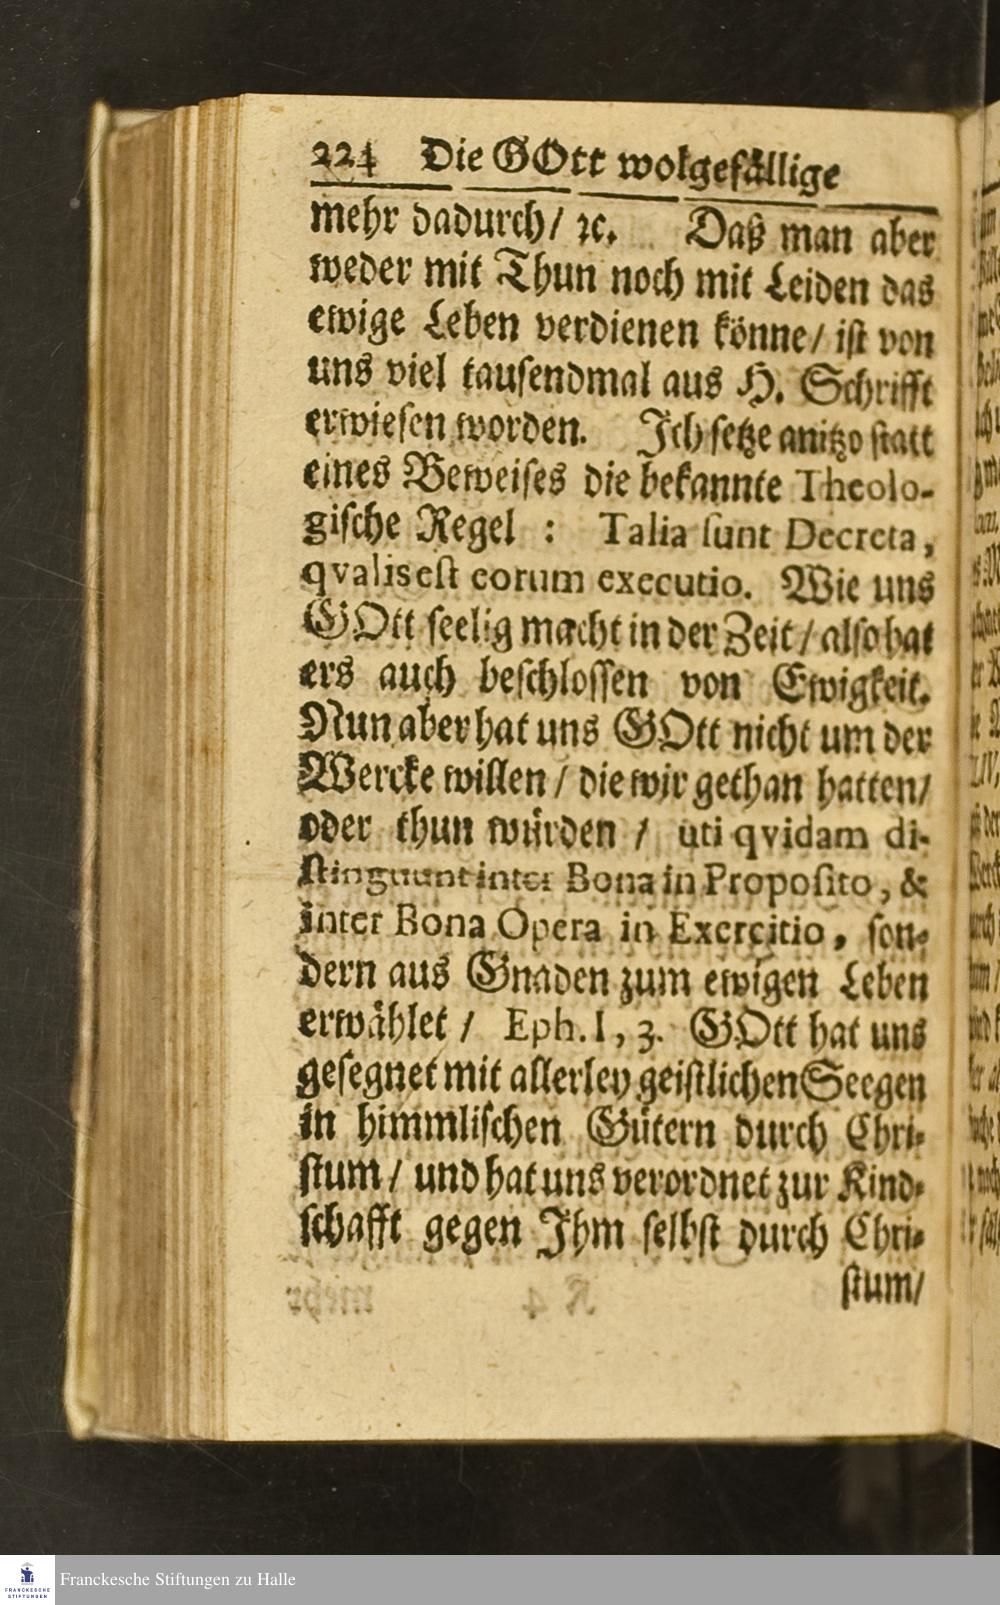 224 Die GOtt wolgefällige
mehr dadurch/ ꝛc. Daß man aber
weder mit Thun noch mit Leiden das
ewige Leben verdienen könne/ ist von
uns viel tausendmal aus H. Schrifft
erwiesen worden. Ich setze anitzo statt
eines Beweises die bekannte Theolo-
gische Regel : Talia sunt Decreta,
qvalis est eorum executio. Wie uns
GOtt seelig macht in der Zeit / also hat
ers auch beschlossen von Ewigkeit.
Nun aber hat uns GOtt nicht um der
Wercke willen / die wir gethan hatten/
oder thun würden / uti qvidam di-
stinguunt inter Bona in Proposito, &
inter Bona Opera in Exercitio, son-
dern aus Gnaden zum ewigen Leben
erwählet / Eph. I, 3. GOtt hat uns
gesegnet mit allerley geistlichen Seegen
in himmlischen Gütern durch Chri-
stum / und hat uns verordnet zur Kind-
schafft gegen Ihm selbst durch Chri-
stum/
Franckesche Stiftungen zu Halle
FRANCKESCHE
STIFTUNGEN